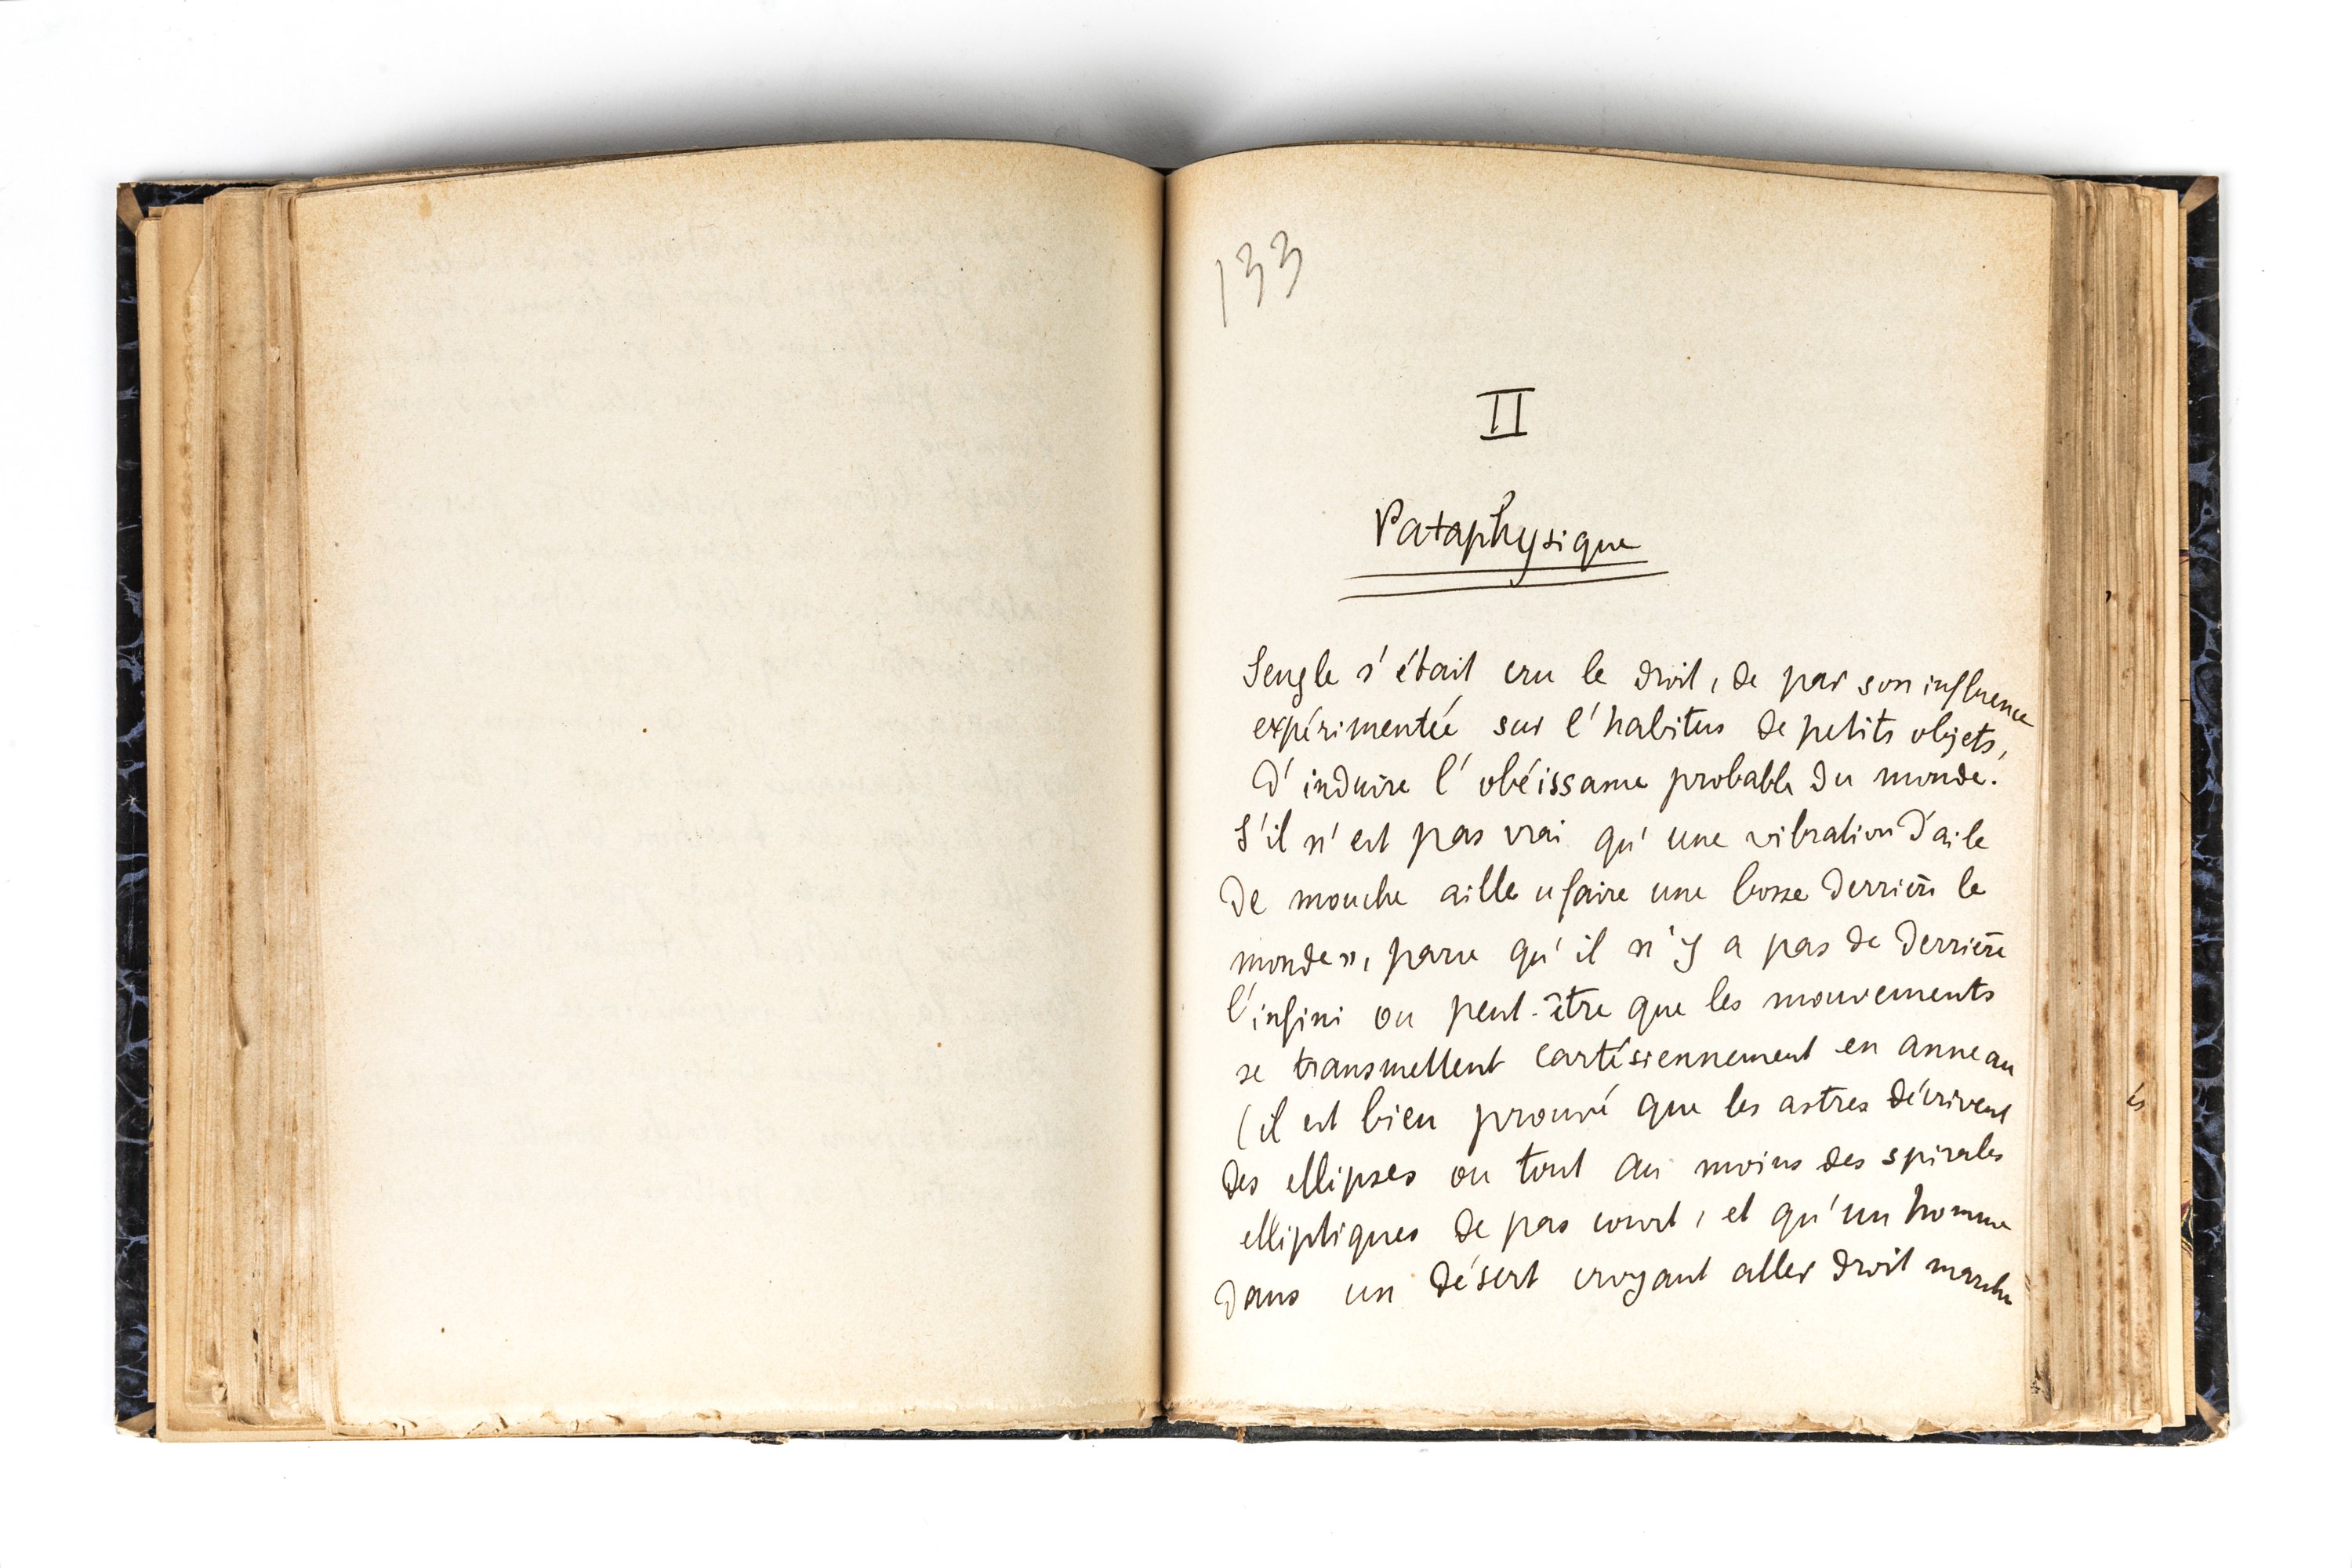 133
II
Pataphysique
Sengle s'était cru le droit, de par son influence
expérimentée sur l'habitus de petits objets,
d'induire l'obéissance probable du monde.
S'il n'est pas vrai qu'une vibration d'aile
de mouche aille « faire une bosse derrière le
monde », parce qu'il n'y a pas de derrière
l'infini ou peut-être que les mouvements
se transmettent cartésiennement en anneau
(il est bien prouvé que les astres décrivent
des ellipses ou tout au moins des spirales
elliptiques de pas court, et qu'un homme
dans un désert croyant aller droit marche